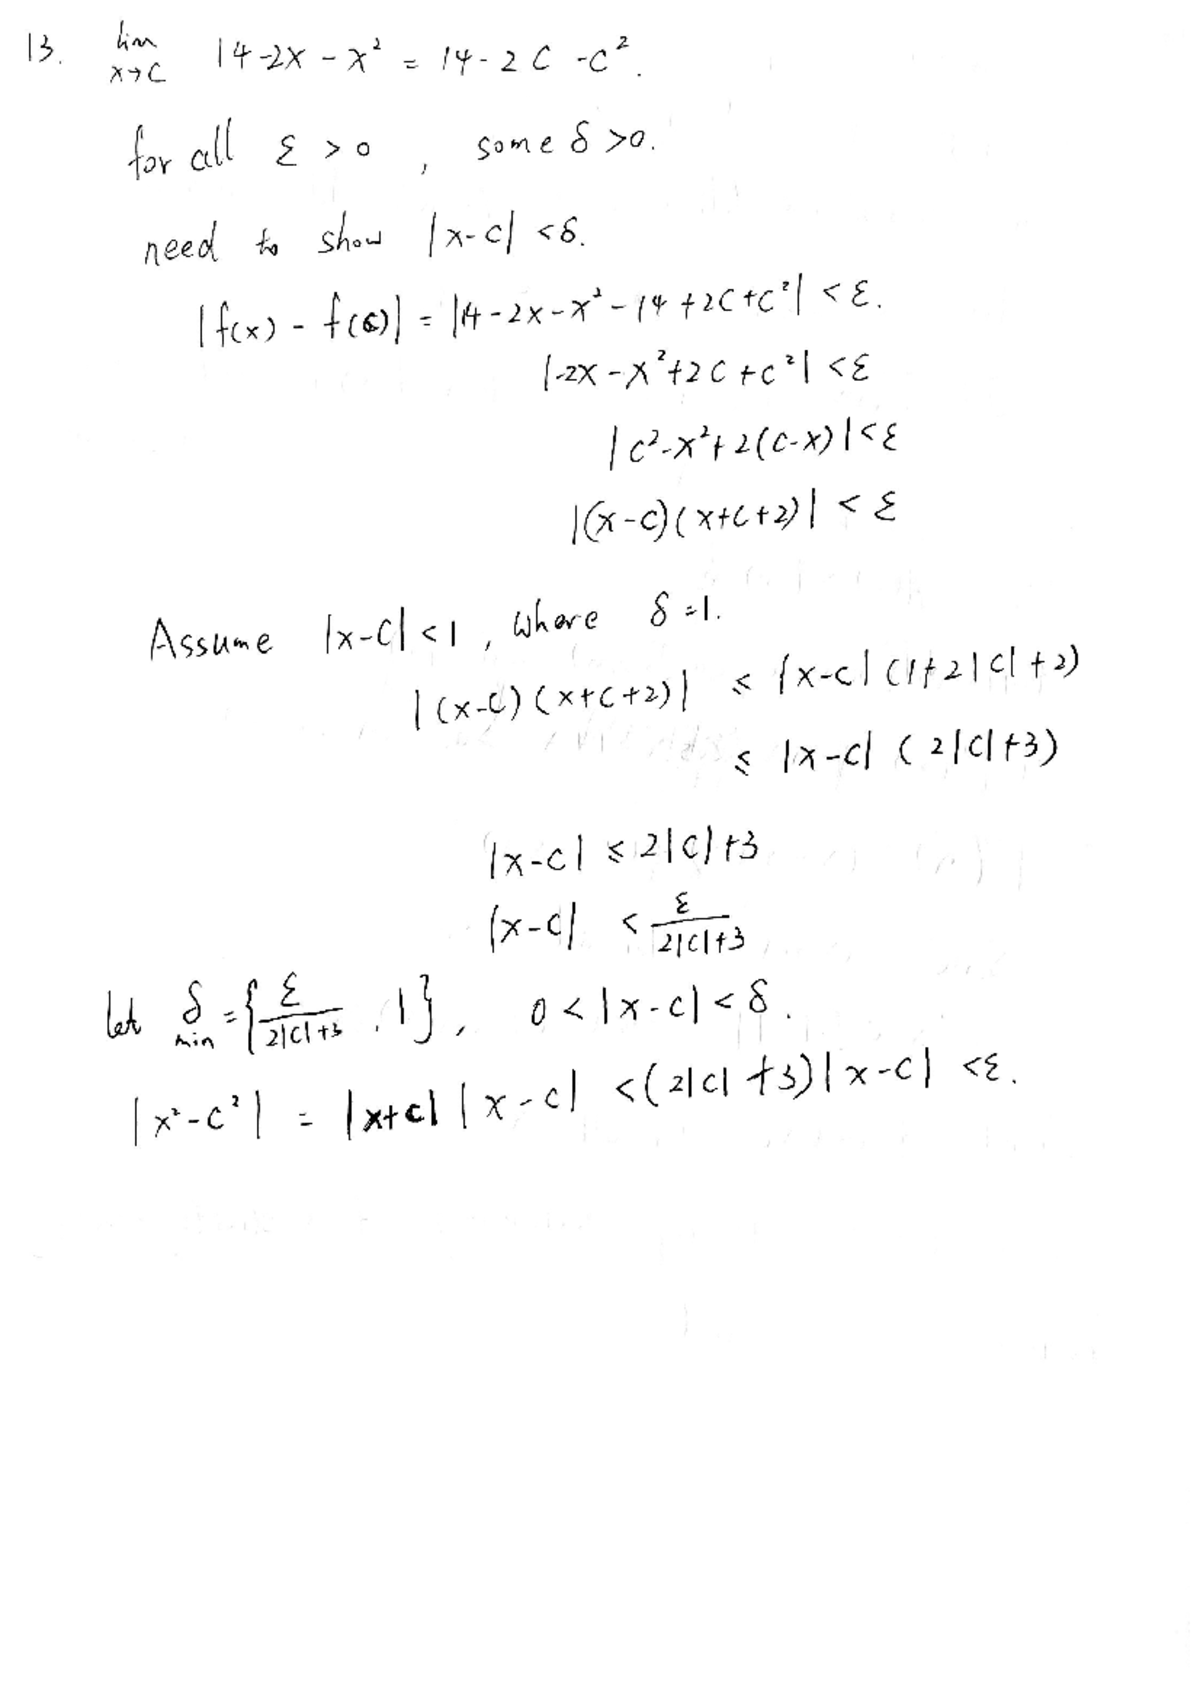 13. lim x→c 14-2x-x² = 14-2c-c².
for all ε>0, some δ>0.
need to show |x-c| <δ.
|f(x) - f(c)| = |14-2x-x²-14+2c+c²| <ε.
|-2x-x²+2c+c²| <ε
|c²-x²+2(c-x)|<ε
|(x-c)(x+c+2)| < ε
Assume |x-c|<1, where δ=1.
|(x-c)(x+c+2)| ≤ |x-c| (1+2|c|+2)
≤ |x-c| (2|c|+3)
|x-c| ≤ 2|c|+3
|x-c| < ε/(2|c|+3)
let δ min = {ε/(2|c|+3), 1}, 0<|x-c|<δ.
|x²-c²| = |x+c| |x-c| <(2|c|+3)|x-c| <ε.